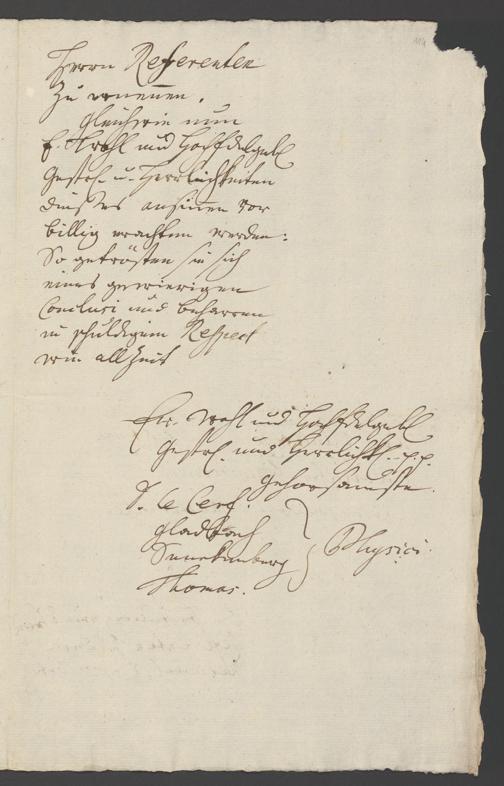 Herrn Referenten
zu ernennen.
Gleichwie nun
E. Wohl und HochEdelgeb.
Gestr. u. Herrlichkeiten
dieses ansinnen vor
billig erachten werden:
So getrösten sie sich
eines gewierigen
Conclusi und beharren
in schuldigem Respect
wie allzeit
Ew. Wohl und HochEdelgeb.
Gestr. und Herrlichk. p.p.
gehorsamste
J. le Cerf.
Gladbach
Senckenberg
Thomas.
Physici.